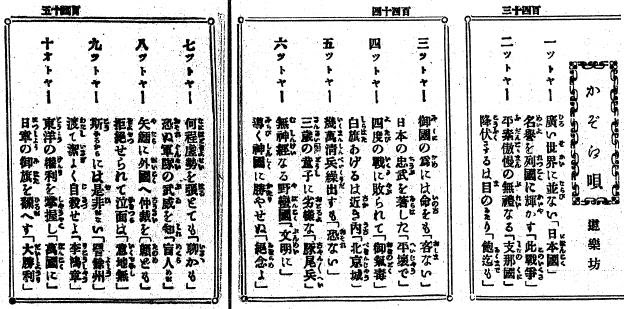 三十四百
かぞへ唄
道樂坊
一ツトヤー 廣い世界に並ない「日本國」
名譽を列國に輝かす「此戰爭」
二ツトヤー 平素傲慢の無禮なる「支那國」
降伏さするは目の「飽迄も」
四十四百
三ツトヤー 御國の爲には命をも「吝ない」
日本の忠武を著した「平壤で」
四ツトヤー 四度の戰に敗られて「御氣毒」
白旗あげるは近き内「北京城」
五ツトヤー 幾萬清兵繰出すも「恐ない」
三歳の童子に劣樣な「豚尾兵」
六ツトヤー 無神經なる野蠻國「文明に」
導く神國に勝やせぬ「絶念よ」
五十四百
七ツトヤー 何程虚勢を張とても「聊かも」
恐ぬ軍隊の武威を知「盲人め」
八ツトヤー 矢鱈に外國へ仲裁を「願ども」
拒絶せられて泣面は「意地無」
九ツトヤー には是非ない
渡て潔よく自裁せよ「李鴻章」
十オトヤー 東洋の權利を掌握し「萬國に」
日軍の御旗を飜へす「大勝利」